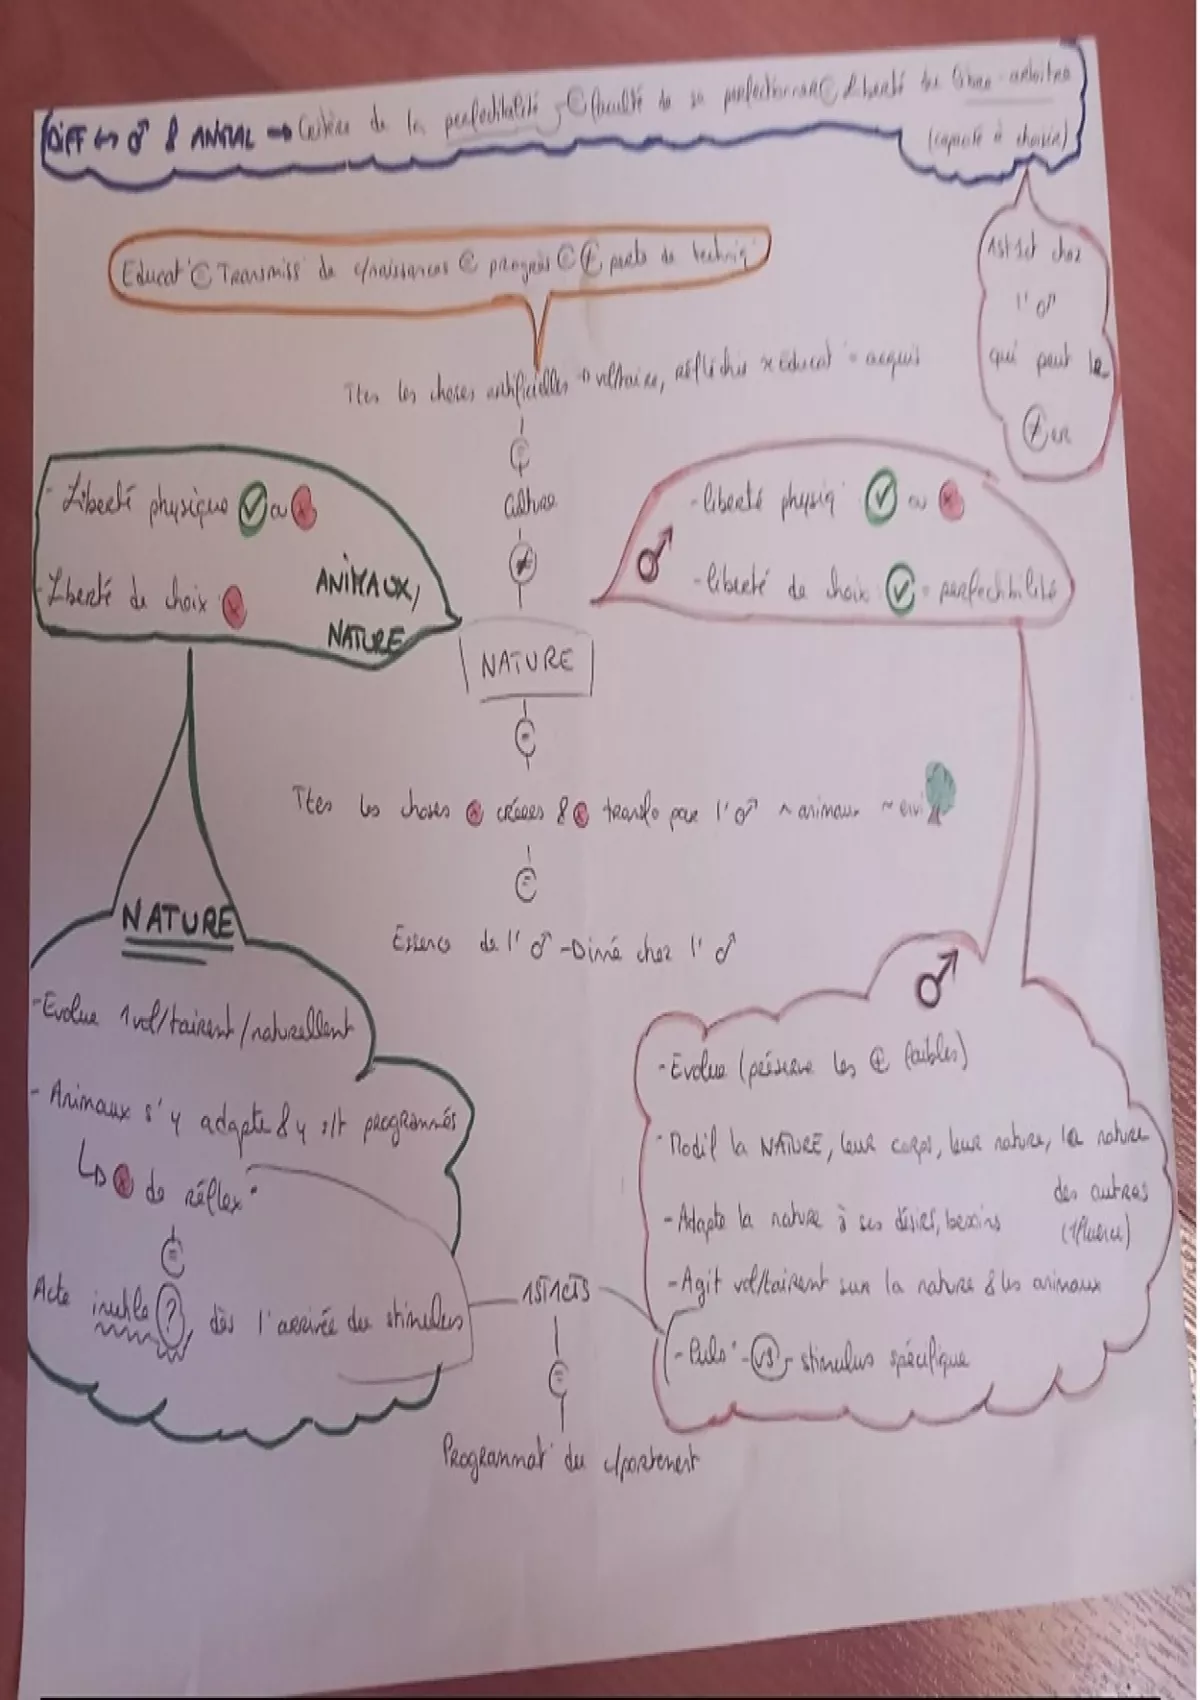 DIFF ↔ ♂ & ANIMAL → Critère de la perfectibilité, = faculté de se perfectionner = Liberté ou libre-arbitre
(capacité à choisir)
Educat° = Transmiss° de c/naissances = progrès = ≠ perte de techniq
Instict chez
l'♂
qui peut le
≠ er
Ttes les choses artificielles → vol/taire, réfléchis × éducat° = acquis
=
culture
≠
- Liberté physique ✓ ou ×
- Liberté de choix ×
ANIMAUX,
NATURE
♂
- liberté physiq ✓ ou ×
- liberté de choix ✓ = perfectibilité
NATURE
=
Ttes les choses × créées & × transfo par l'♂ ~ animaux ~ envi
=
Essence de l'♂ - Di né chez l'♂
NATURE
- Evolue 1vol/tairent/naturellent
- Animaux s'y adapte & y s/t programmés
↳ × de réflex°
=
Acte inutile ?, dès l'arrivée du stimulus
♂
- Evolue (préserve les + faibles)
- Modif la NATURE, leur corps, leur nature, la nature
des autres
(1fluence)
- Adapte la nature à ses désirs, besoins
- Agit vol/tairent sur la nature & les animaux
- Puls° - vs - stimulus spécifique
1STICTS
=
Programmat° du c/portement